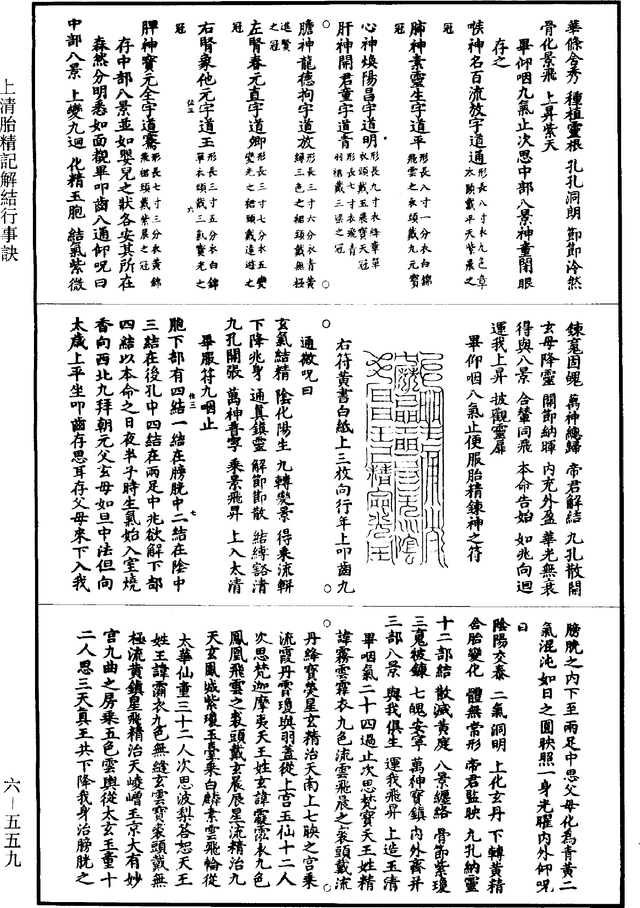 上清胎精記解結行事訣
六–五五九
華條含秀 種植靈根 孔孔洞朗 節節泠然
骨化景飛 上昇紫天
畢仰咽九氣止次思中部八景神童閉眼
存之
喉神名百流放字道通形長八寸衣九色章衣頭戴平天紫晨之
冠
肺神素靈生字道平形長八寸一分衣白錦飛雲之衣頭戴九元寶
冠
心神煥陽昌字道明形長九寸衣絳章單衣頭戴玉晨寶天冠
肝神開君童字道青形長七寸衣飛青羽裙戴三梁之冠
膽神龍德拘字道放形長三寸六分衣青黃綠三色之裙頭戴無極
進賢之冠
左腎春元直字道卿形長三寸七分衣五變光之裙頭戴遠遊之
冠
右腎象他元字道玉形長三寸五分衣白錦單衣頭戴三氣寶光之
冠
脾神寶元全字道騫形長七寸三分衣黃錦飛裙頭戴紫晨之冠
存中部八景並如嬰兒之狀各安其所在
森然分明悉如面觀畢叩齒八通仰呪曰
中部八景 上變九迴 化精玉胞 結氣紫微
鍊䰟固魄 萬神總歸 帝君解結 九孔散開
玄母降靈 關節納暉 內充外盈 華光無衰
得與八景 合輦同飛 本命告始 如兆向迴
運我上昇 披觀靈扉
畢仰咽八氣止便服胎精鍊神之符
右符黃書白紙上三枚向行年上叩齒九
通微呪曰
玄氣結精 陰化陽生 九轉變景 得乘流軿
下降兆身 通真鎮靈 解節節散 結縛豁清
九孔開張 萬神晋寧 乘景飛昇 上入太清
畢服符九咽止
胞下部有四結一結在膀胱中二結在陰中
三結在後孔中四結在兩足中兆欲解下部
四結以本命之日夜半子時生氣始入室燒
香向西北九拜朝元父玄母如旦中法但向
太歲上平坐叩齒存思耳存父母來下入我
膀胱之內下至兩足中思父母化為青黃二
氣混沌如日之圓映照一身光曜內外仰呪
曰
陰陽交泰 二氣洞明 上化玄丹 下轉黃精
合胎變化 體無常形 帝君監映 九孔納靈
十二部結 散滅黃庭 八景纏絡 骨節紫瓊
三䰟被鍊 七魄安寧 萬神寶鎮 內外齊并
三部八景 與我俱生 運我飛昇 上造玉清
畢咽氣二十四過止次思梵寶天王姓精
諱霧雲霏衣九色流雲飛晨之裘頭戴流
丹絳寶蓂星玄精治天南上七映之宮乘
流霞丹霄瓊輿羽蓋從上宮玉仙十二人
次思梵迦摩夷天王姓玄諱霞霑衣九色
鳳凰飛雲之裘頭戴玄晨辰星流精治九
天玄鳳城紫瓊玉臺乘白麟素雲飛輪從
太華仙童三十二人次思波梨荅恕天王
姓王諱霈衣九色無縫玄雲寶裘頭戴無
極流黃鎮星飛精治天崚嶒玉京大有妙
宮九曲之房乘五色雲輿從太玄玉童十
二人思三天真王共下降我身治膀胱之